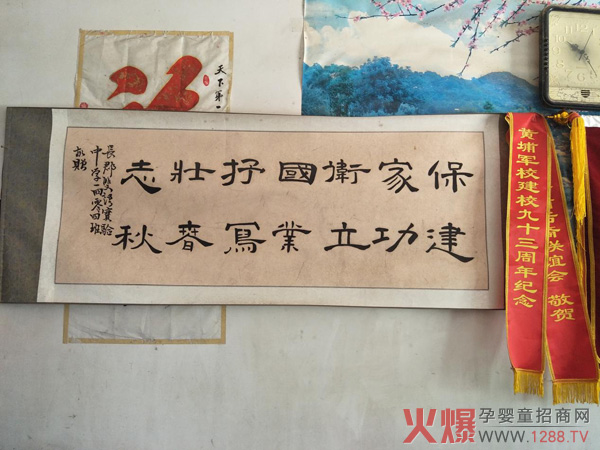 天下第一
保家衛國抒壯志
建功立業寫春秋
長郡双语實驗
中学一四零四班
敬贈
黄埔军校建校九十三周年纪念
联谊会 敬贺
火爆 孕婴童招商网
www.1288.TV